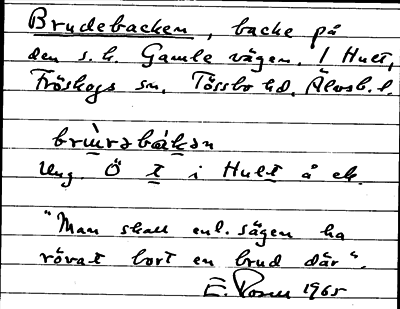 Brudebacken, backe på
den s.k. Gamla vägen. I Hult,
Fröskogs sn, Tössbo hd. Älvsb. l.
brùⁿrəbákən
Ung. Ö t i Hult å ek.
"Man skall enl. sägen ha
rövat bort en brud där".
E. 1965